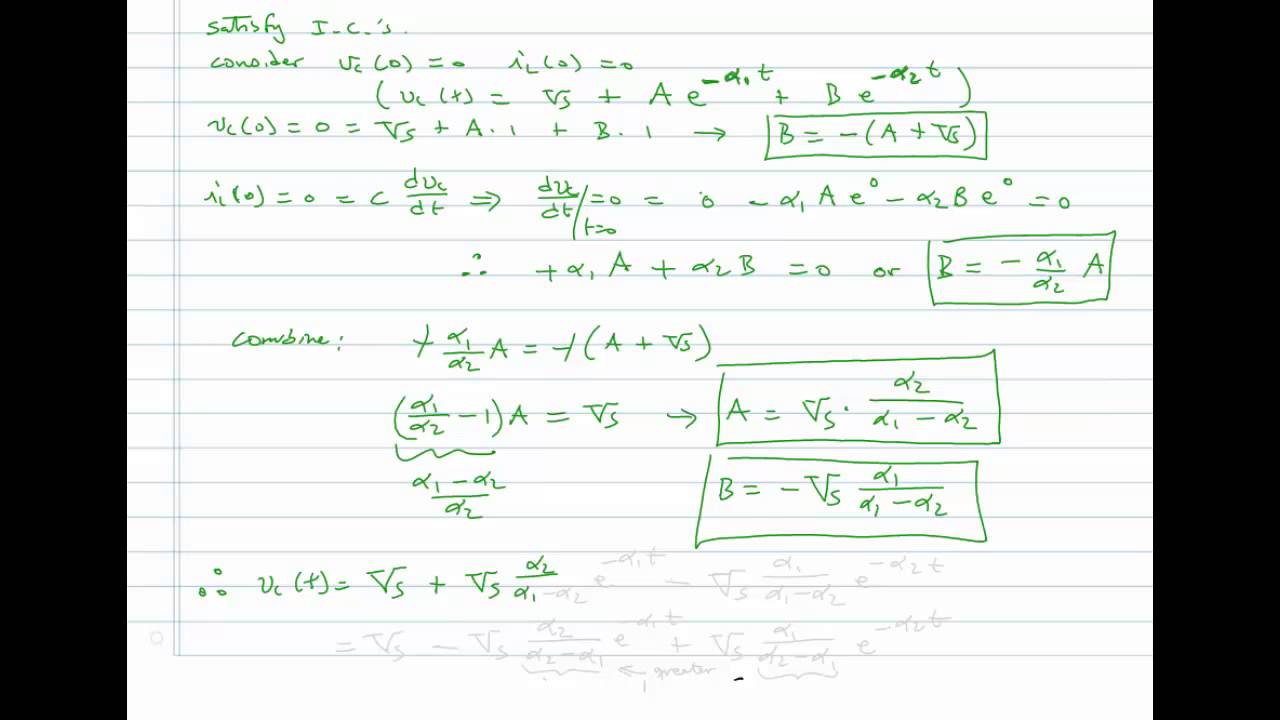 satisfy I.C.'s.
consider v_c(0) = 0 i_L(0) = 0
(v_c(t) = V_s + A e^{-α₁t} + B e^{-α₂t})
v_c(0) = 0 = V_s + A·1 + B·1 → B = -(A + V_s)
i_L(0) = 0 = C dv_c/dt ⇒ dv_c/dt|_{t=0} = 0 = 0 - α₁ A e⁰ - α₂ B e⁰ = 0
∴ +α₁ A + α₂ B = 0 or B = - α₁/α₂ A
combine: ⌿ α₁/α₂ A = ⌿ (A + V_s)
(α₁/α₂ - 1) A = V_s → A = V_s · α₂/(α₁ - α₂)
(α₁ - α₂)/α₂ B = - V_s α₁/(α₁ - α₂)
∴ v_c(t) = V_s + V_s α₂/(α₁ - α₂) e^{-α₁t} - V_s α₁/(α₁ - α₂) e^{-α₂t}
= V_s - V_s α₂/(α₂ - α₁) e^{-α₁t} + V_s α₁/(α₂ - α₁) e^{-α₂t}
← greater